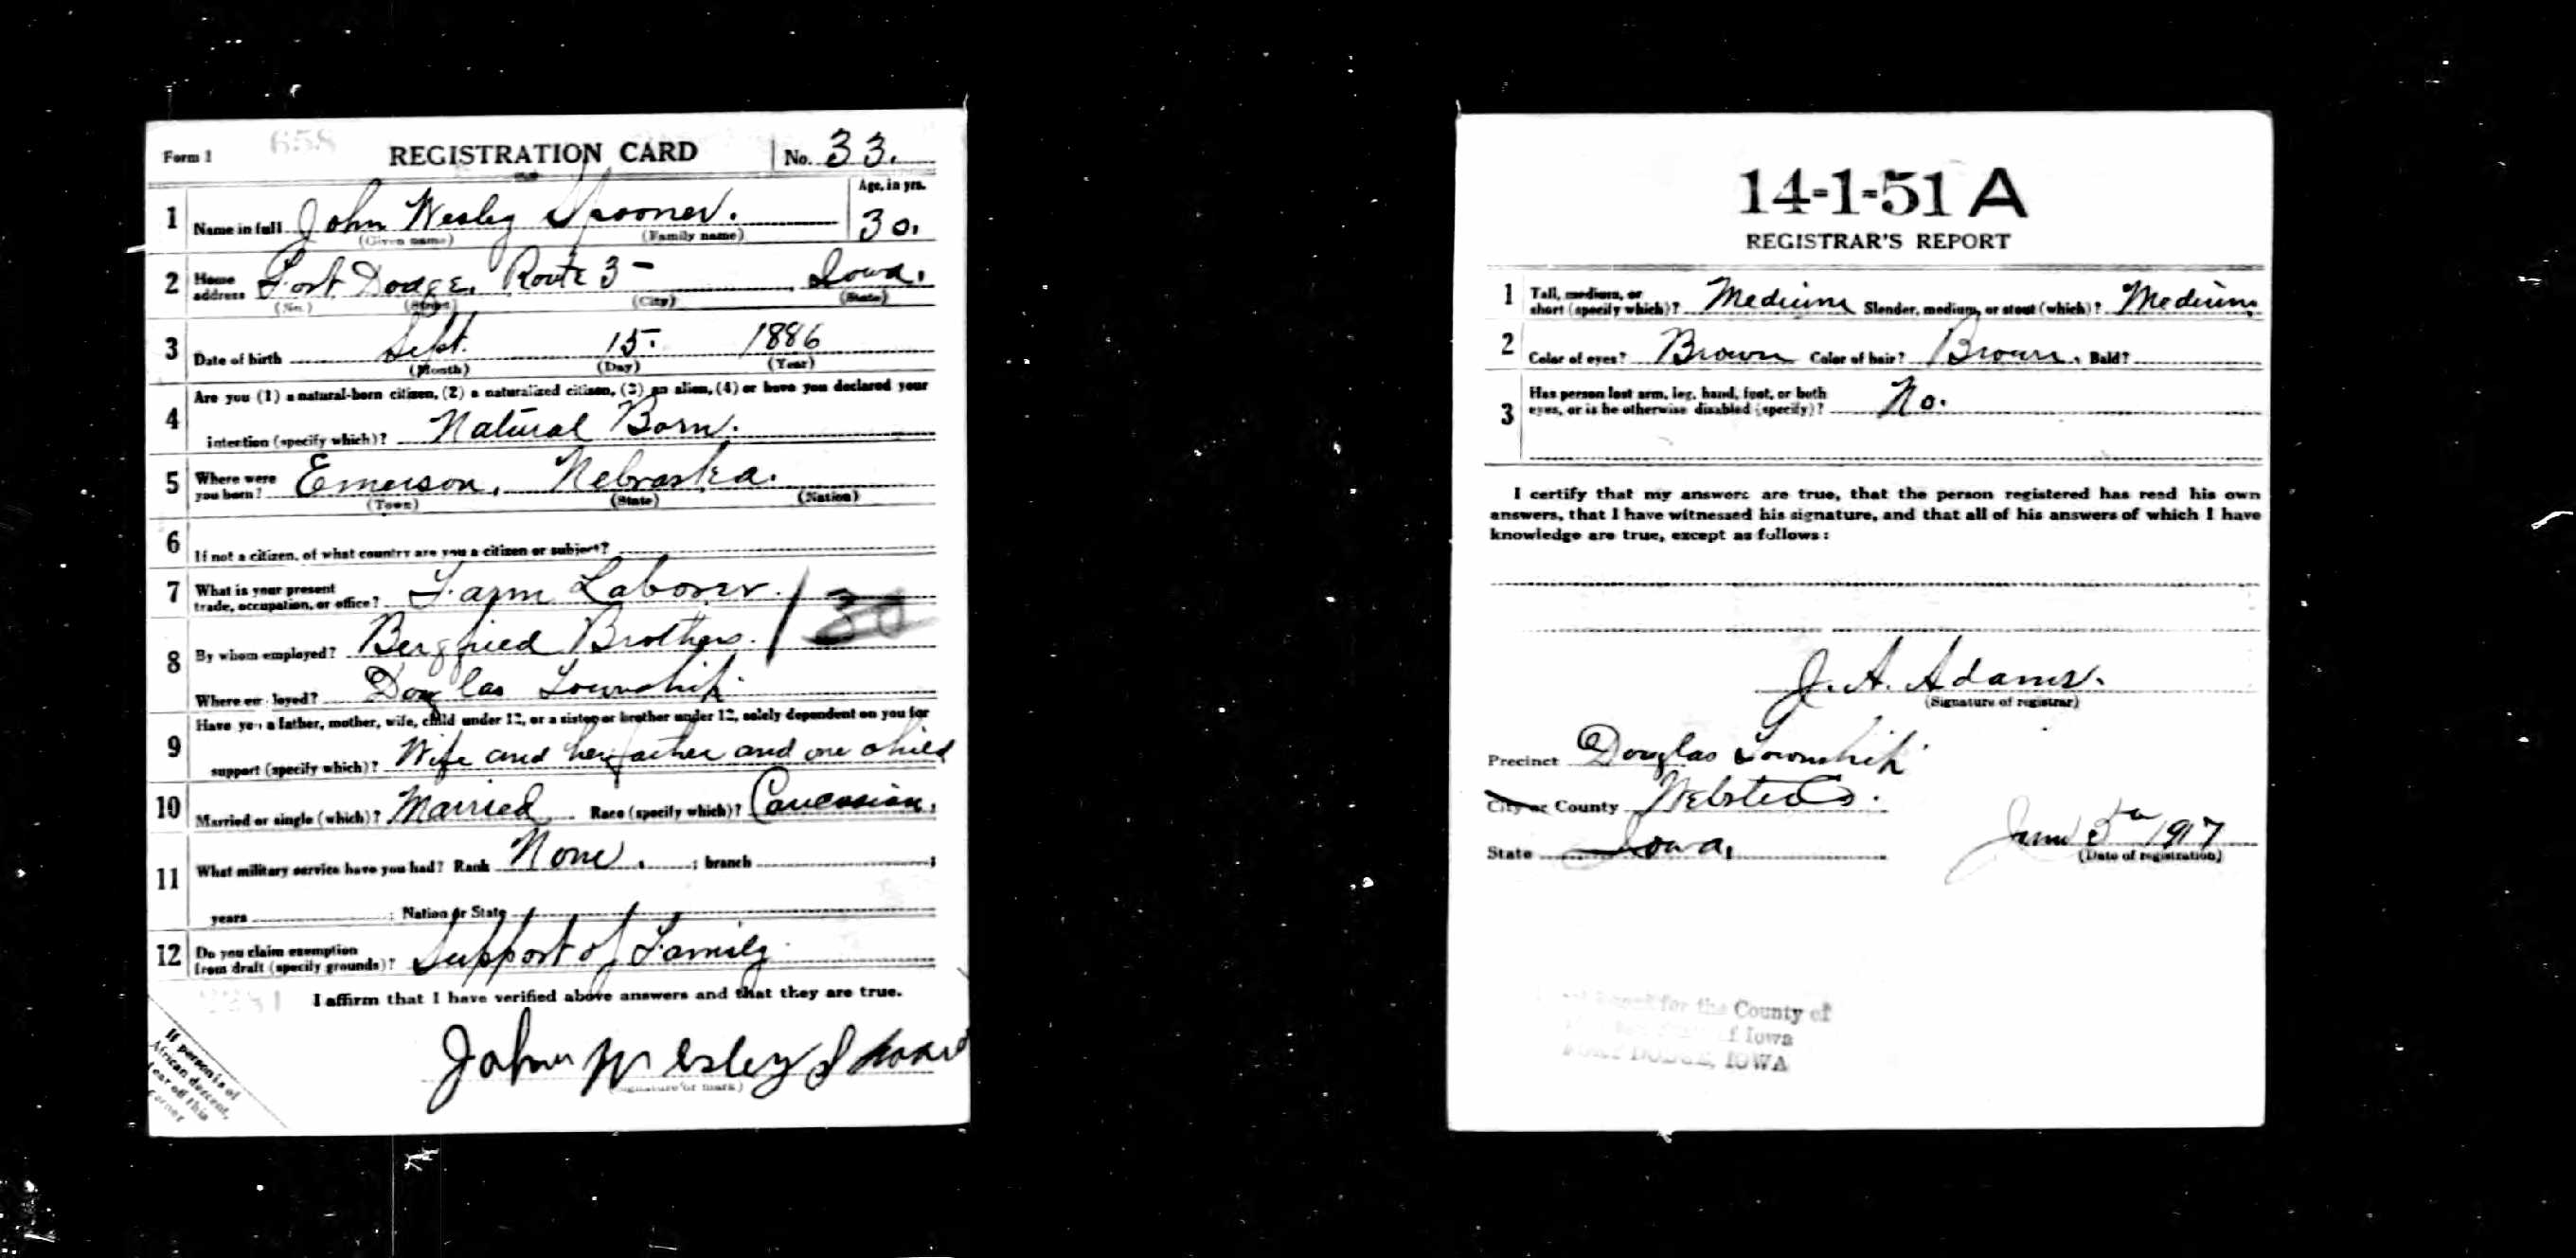 Form 1 658 REGISTRATION CARD No. 33.
1 Name in full John Wesley Spooner. Age, in yrs. 30.
(Given name) (Family name)
2 Home address Fort Dodge, Route 3 - Iowa.
(No.) (Street) (City) (State)
3 Date of birth Sept. 15. 1886
(Month) (Day) (Year)
Are you (1) a natural-born citizen, (2) a naturalized citizen, (3) an alien, (4) or have you declared your
4 intention (specify which)? Natural Born.
5 Where were you born? Emerson, Nebraska.
(Town) (State) (Nation)
6 If not a citizen, of what country are you a citizen or subject?
7 What is your present trade, occupation, or office? Farm Laborer.
8 By whom employed? Bergfried Brothers. 30
Where employed? Douglas Township
Have you a father, mother, wife, child under 12, or a sister or brother under 12, solely dependent on you for
9 support (specify which)? Wife and her father and one child
10 Married or single (which)? Married Race (specify which)? Caucasian.
11 What military service have you had? Rank None. ; branch ;
years ; Nation or State
12 Do you claim exemption from draft (specify grounds)? Support of Family
I affirm that I have verified above answers and that they are true.
John Wesley Spooner
(Signature or mark)
If person is of
African descent,
tear off this
corner
14-1-51 A
REGISTRAR'S REPORT
1 Tall, medium, or short (specify which)? Medium Slender, medium, or stout (which)? Medium
2 Color of eyes? Brown Color of hair? Brown. Bald?
3 Has person lost arm, leg, hand, foot, or both
eyes, or is he otherwise disabled (specify)? No.
I certify that my answers are true, that the person registered has read his own
answers, that I have witnessed his signature, and that all of his answers of which I have
knowledge are true, except as follows:
J. A. Adams.
(Signature of registrar)
Precinct Douglas Township
City or County Webster Co.
State Iowa, June 5th 1917
(Date of registration)
for the County of
of Iowa
FORT DODGE, IOWA